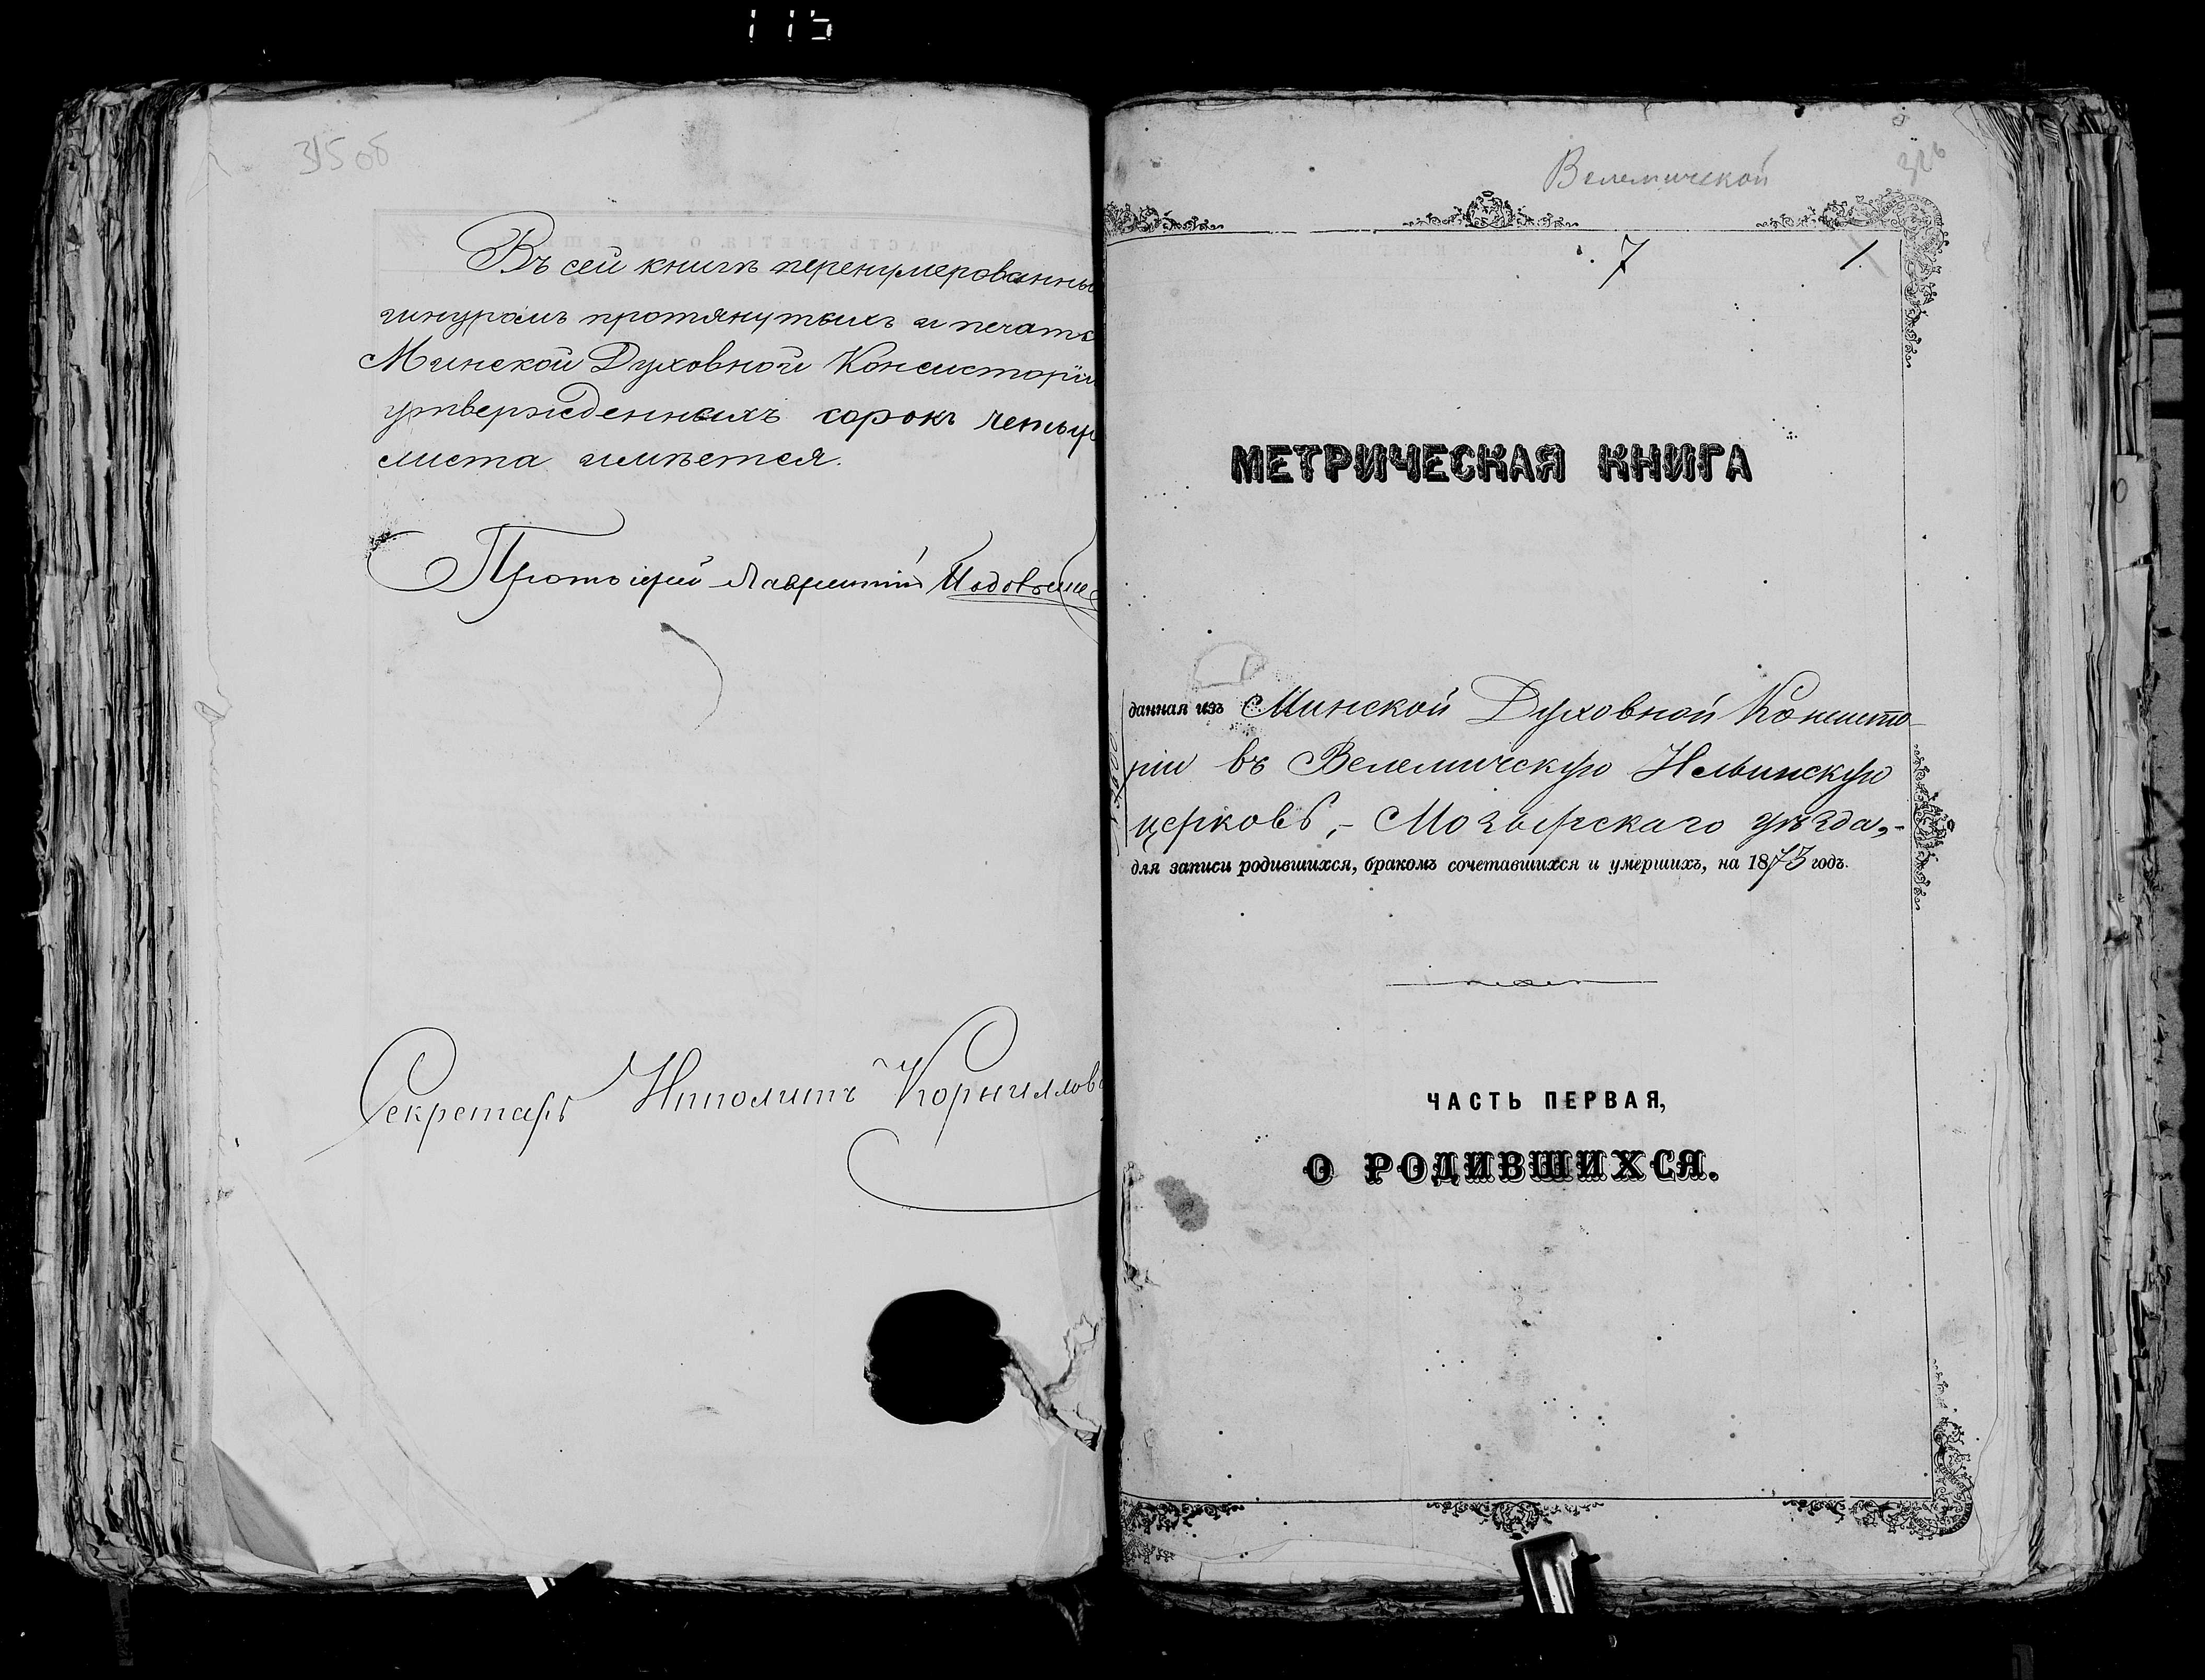 115
315 об
Въ сей книгѣ перенумерованны
шнуромъ протянутыхъ и печать
Минской Духовной Консисторіи
утвержденныхъ сорокъ четыр
листа имѣется.
Протоіерей Лаврентій
Секретарь Ипполитъ Корниллов
Велемической
316
7 1.
МЕТРИЧЕСКАЯ КНИГА
данная изъ Минской Духовной Консисто-
ріи въ Велемичскую Ильинскую
церковь, - Мозырскаго уѣзда, -
для записи родившихся, бракомъ сочетавшихся и умершихъ, на 1873 годъ.
ЧАСТЬ ПЕРВАЯ,
О РОДИВШИХСЯ.